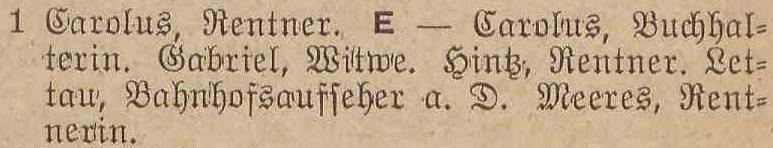 1 Carolus, Rentner. E — Carolus, Buchhal-
terin. Gabriel, Witwe. Hintz, Rentner. Let-
tau, Bahnhofsaufseher a. D. Meeres, Rent-
nerin.